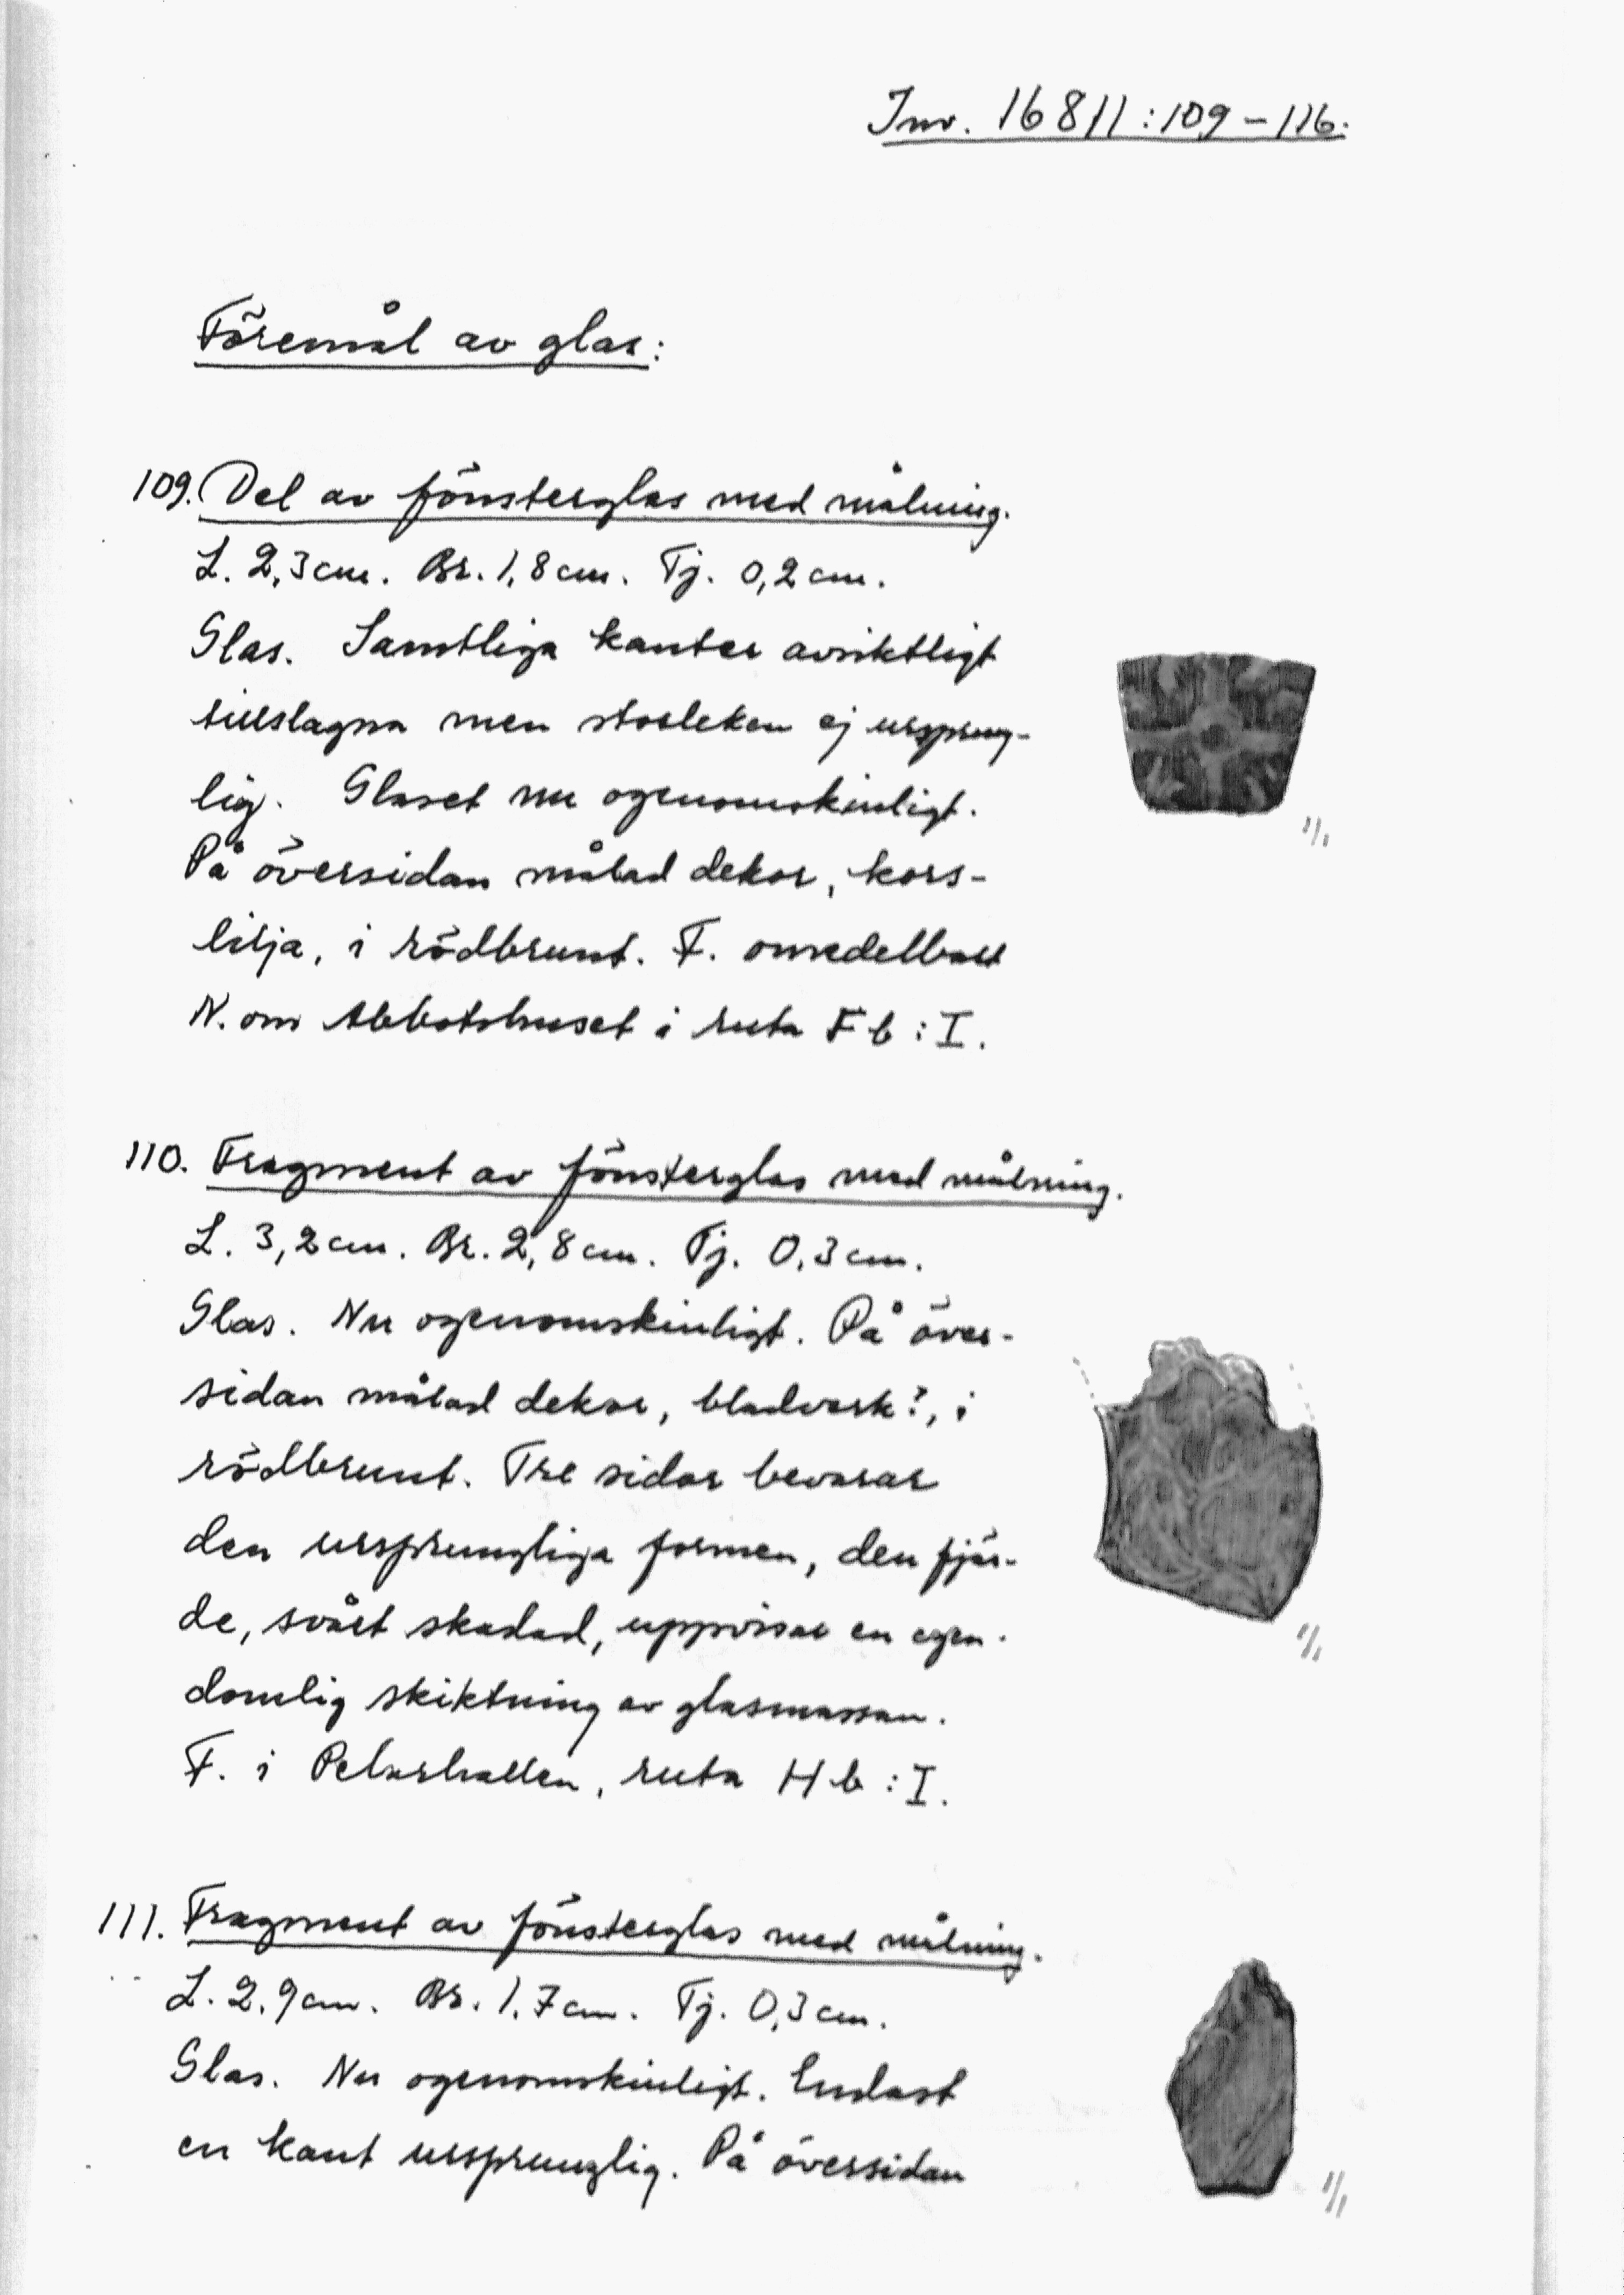 Inv. 16811:109-116.
Föremål av glas:
109. Del av fönsterglas med målning.
L. 2,3 cm. Br. 1,8 cm. Tj. 0,2 cm.
Glas. Samtliga kanter avsiktligt
tillslagna men storleken ej ursprung-
lig. Glaset nu ogenomskinligt.
På översidan målad dekor, kors-
lilja, i rödbrunt. F. omedelbart
N. om Abbotshuset i ruta Fb:I.
1/1
110. Fragment av fönsterglas med målning.
L. 3,2 cm. Br. 2,8 cm. Tj. 0,3 cm.
Glas. Nu ogenomskinligt. På över-
sidan målad dekor, bladverk?, i
rödbrunt. Tre sidor bevarar
den ursprungliga formen, den fjär-
de, svårt skadad, uppvisar en egen-
domlig skiktning av glasmassan.
F. i Pelarhallen, ruta Hb:I.
1/1
111. Fragment av fönsterglas med målning.
L. 2,9 cm. Br. 1,7 cm. Tj. 0,3 cm.
Glas. Nu ogenomskinligt. Endast
en kant ursprunglig. På översidan
1/1